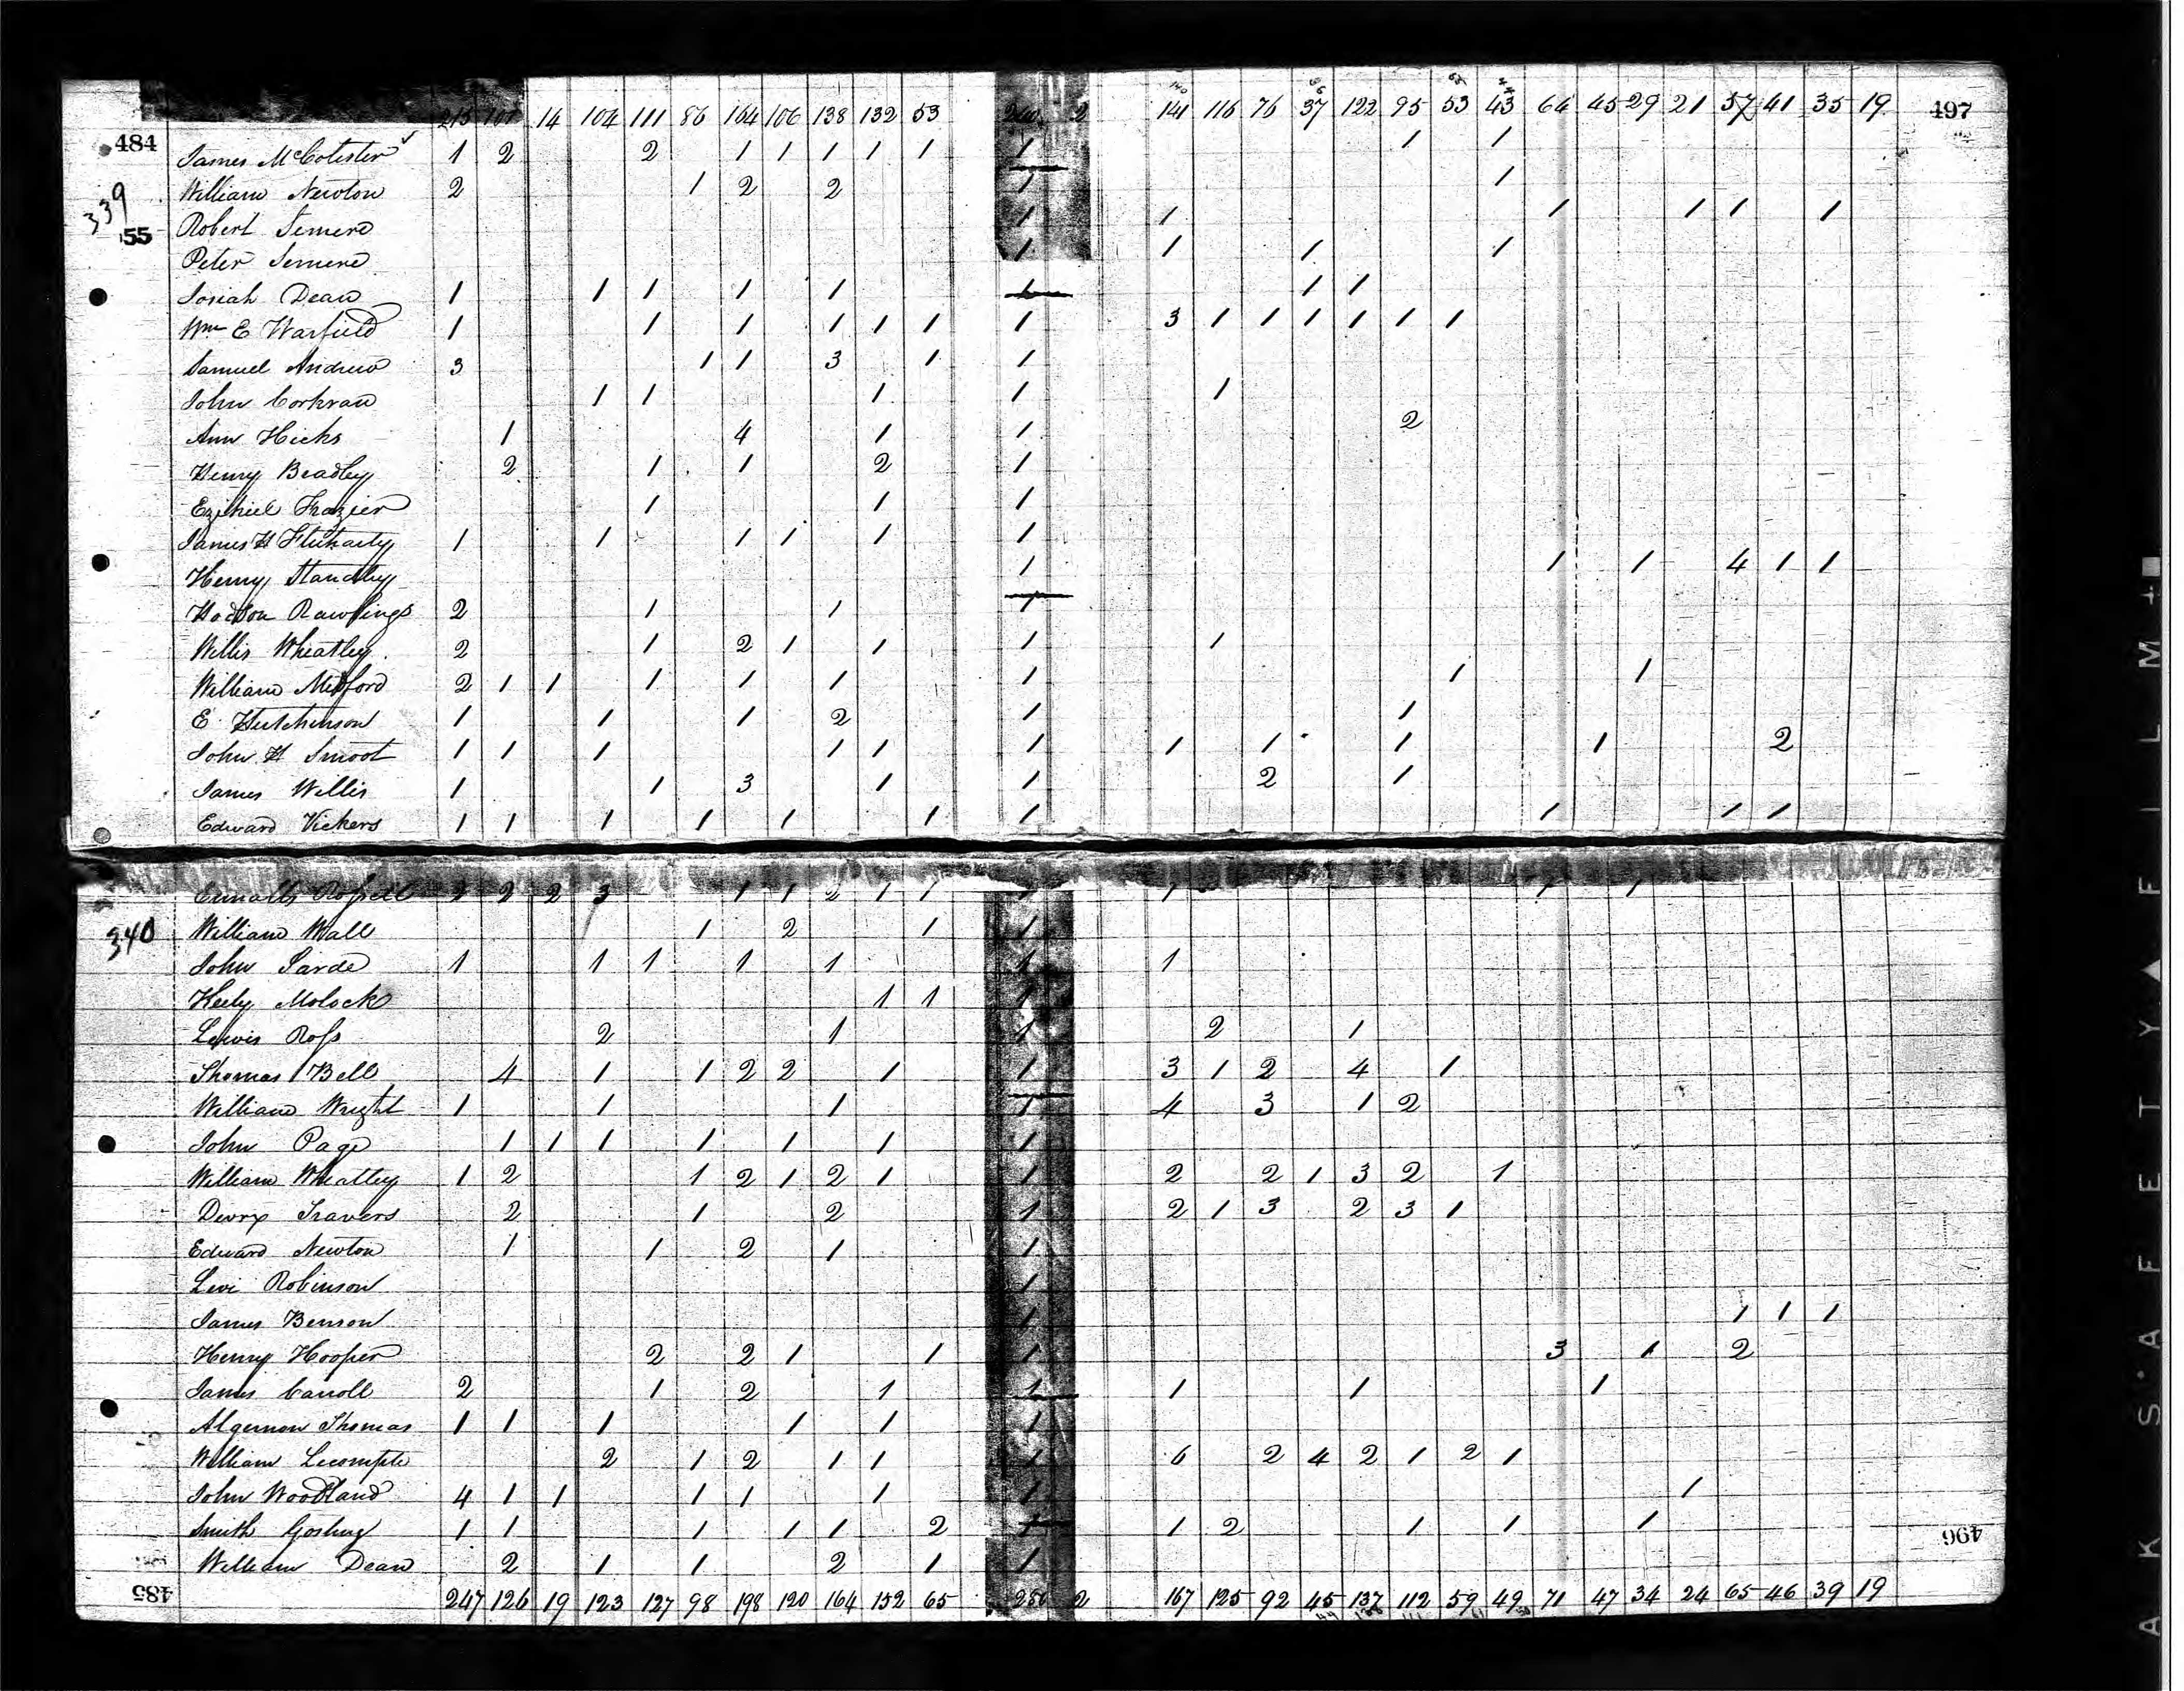 215 101 14 104 111 86 164 106 138 132 53 2 141 116 76 37 122 95 53 43 64 45 29 21 57 41 35 19 497
484 James McColister 1 2 2 1 1 1 1 1 1 1 1
339 William Newton 2 1 2 2 1 1
55 Robert 1 1 1 1 1 1
Peter 1 1 1 1
Josiah Dean 1 1 1 1 1 1 1 1
Wm E Warfield 1 1 1 1 1 1 1 3 1 1 1 1 1 1
Samuel Andrew 3 1 1 3 1 1
John Corkran 1 1 1 1 1
Ann Hicks 1 4 1 1 2
Henry Bradley 2 1 1 2 1
Ezekiel Frazier 1 1 1
James H Fluharty 1 1 1 1 1 1
Henry Standley 1 1 1 4 1 1
Hodson Rawlings 2 1 1 1
Willis Wheatley 2 1 2 1 1 1 1
William Medford 2 1 1 1 1 1 1 1 1
E Hutchinson 1 1 1 2 1 1
John H Smoot 1 1 1 1 1 1 1 1 1 1 2
James Willis 1 1 3 1 1 2 1
Edward Vickers 1 1 1 1 1 1 1 1 1 1
Ennalls 2 2 2 3 1 1 2 1 1 1 1 1 1
340 William Wall 1 2 1 1
John 1 1 1 1 1 1 1
Keely Molock 1 1 1
Lewis Ross 2 1 1 2 1
Thomas Bell 4 1 1 2 2 1 1 3 1 2 4 1
William Wright 1 1 1 1 4 3 1 2
John Page 1 1 1 1 1 1 1
William Wheatley 1 2 1 2 1 2 1 1 2 2 1 3 2 1
Travers 2 1 2 1 2 1 3 2 3 1
Edward Newton 1 1 2 1 1
Levi Robinson 1
James Benson 1 1 1 1
Henry Hooper 2 2 1 1 1 3 1 2
James Carroll 2 1 2 1 1 1 1 1
Algernon Thomas 1 1 1 1 1 1
William Lecompte 2 1 2 1 1 1 6 2 4 2 1 2 1
John Woodland 4 1 1 1 1 1 1 1
Smith Gosling 1 1 1 1 1 2 1 1 2 1 1 1
William Dean 2 1 1 2 1 1
496
485 247 126 19 123 127 98 198 120 164 152 65 280 2 167 125 92 45 137 112 59 49 71 47 34 24 65 46 39 19
A K S A F E T Y ▲ F I L M